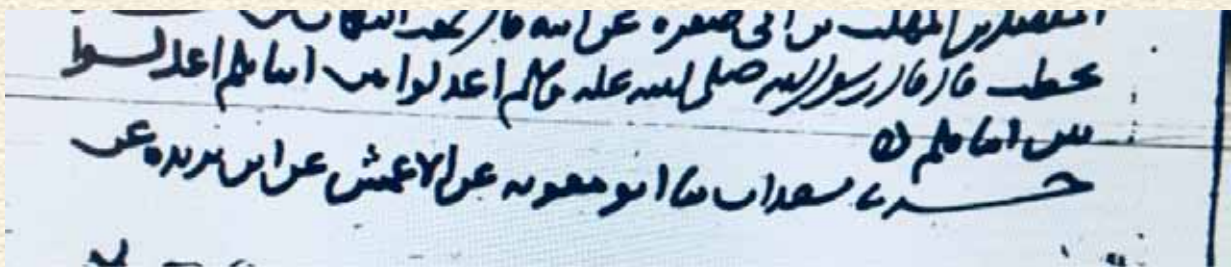 المفضل بن المهلب بن ابي صفره عن ابيه قال سمعت النعمان بن
يخطب قال قال رسول الله صلى الله عليه وسلم اعدلوا بين ابنائكم اعدلوا
بين ابنائكم ه
حدثنا سعدان نا ابو معويه عن الاعمش عن ابن بريده عن